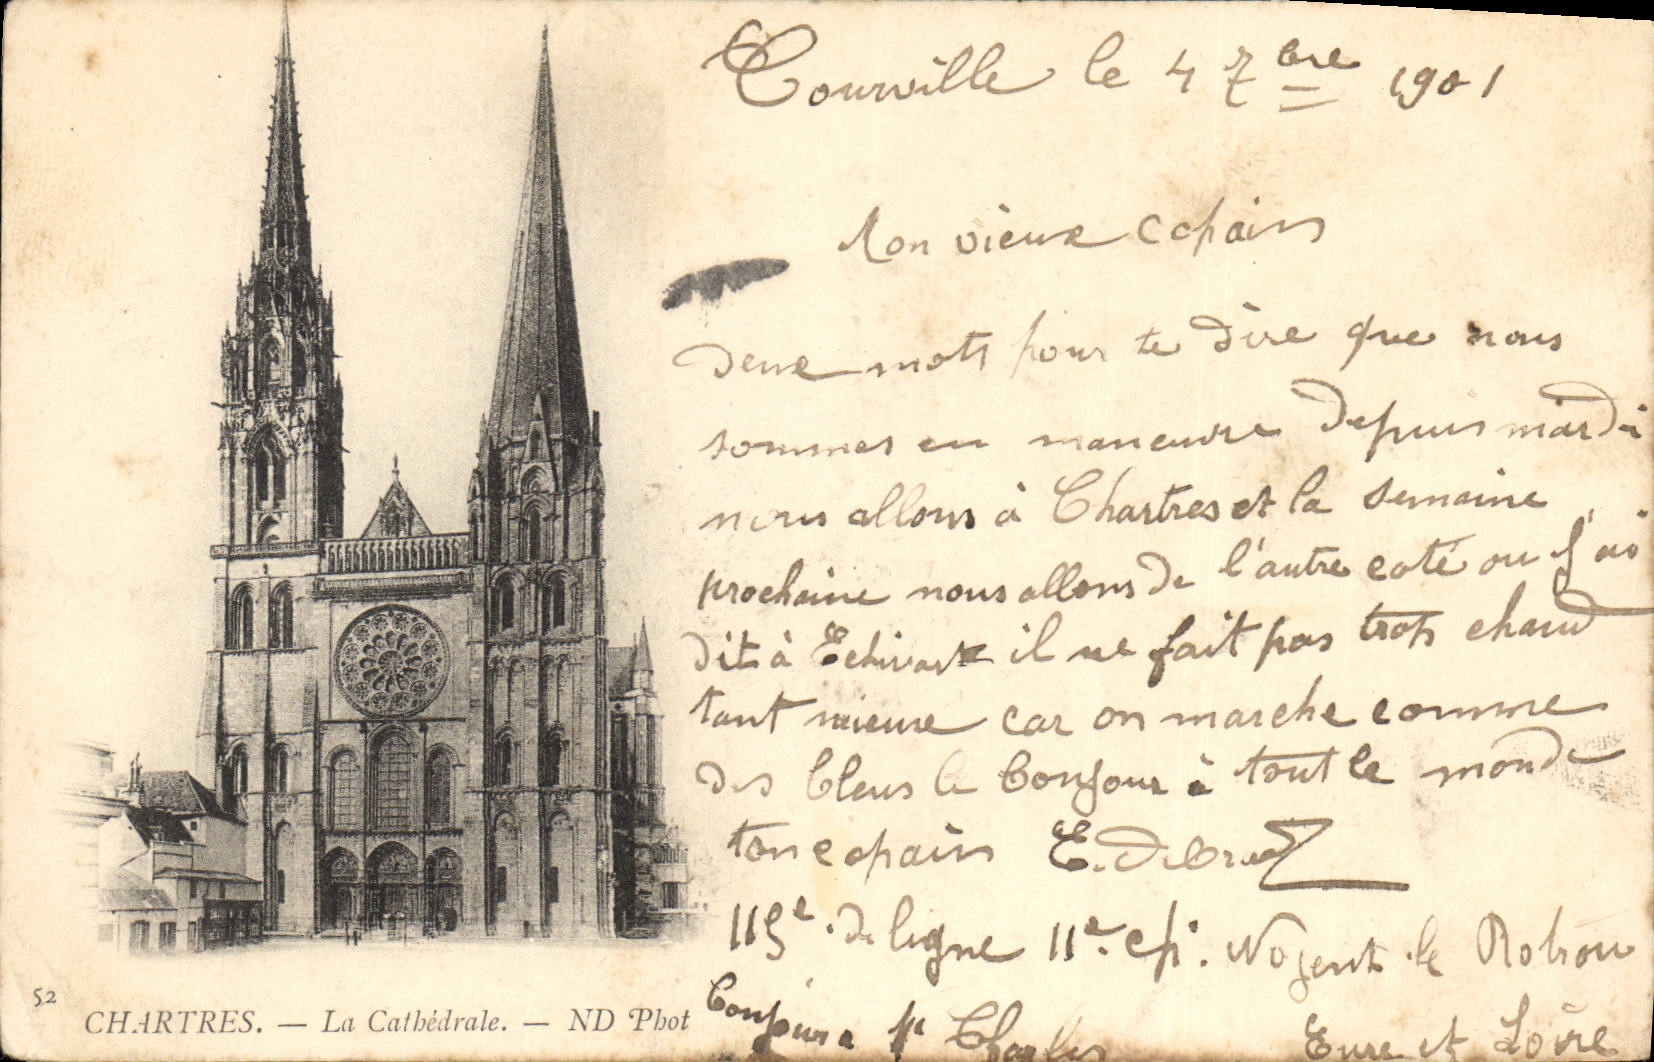 Courville le 4 7bre 1901
Mon vieux copains
deux mots pour te dire que nous
sommes en maneuvre depuis mardi
nous allons à Chartres et la semaine
prochaine nous allons de l'autre coté ou j'ai
dit à il ne fait pas trop chaud
tant mieux car on marche comme
des bleus le bonjour à tout le monde
ton copain E.
115e de ligne 11e cpi. Nogent le Rotrou
bonjour a Charles
Eure et Loire
52
CHARTRES. — La Cathédrale. — ND Phot